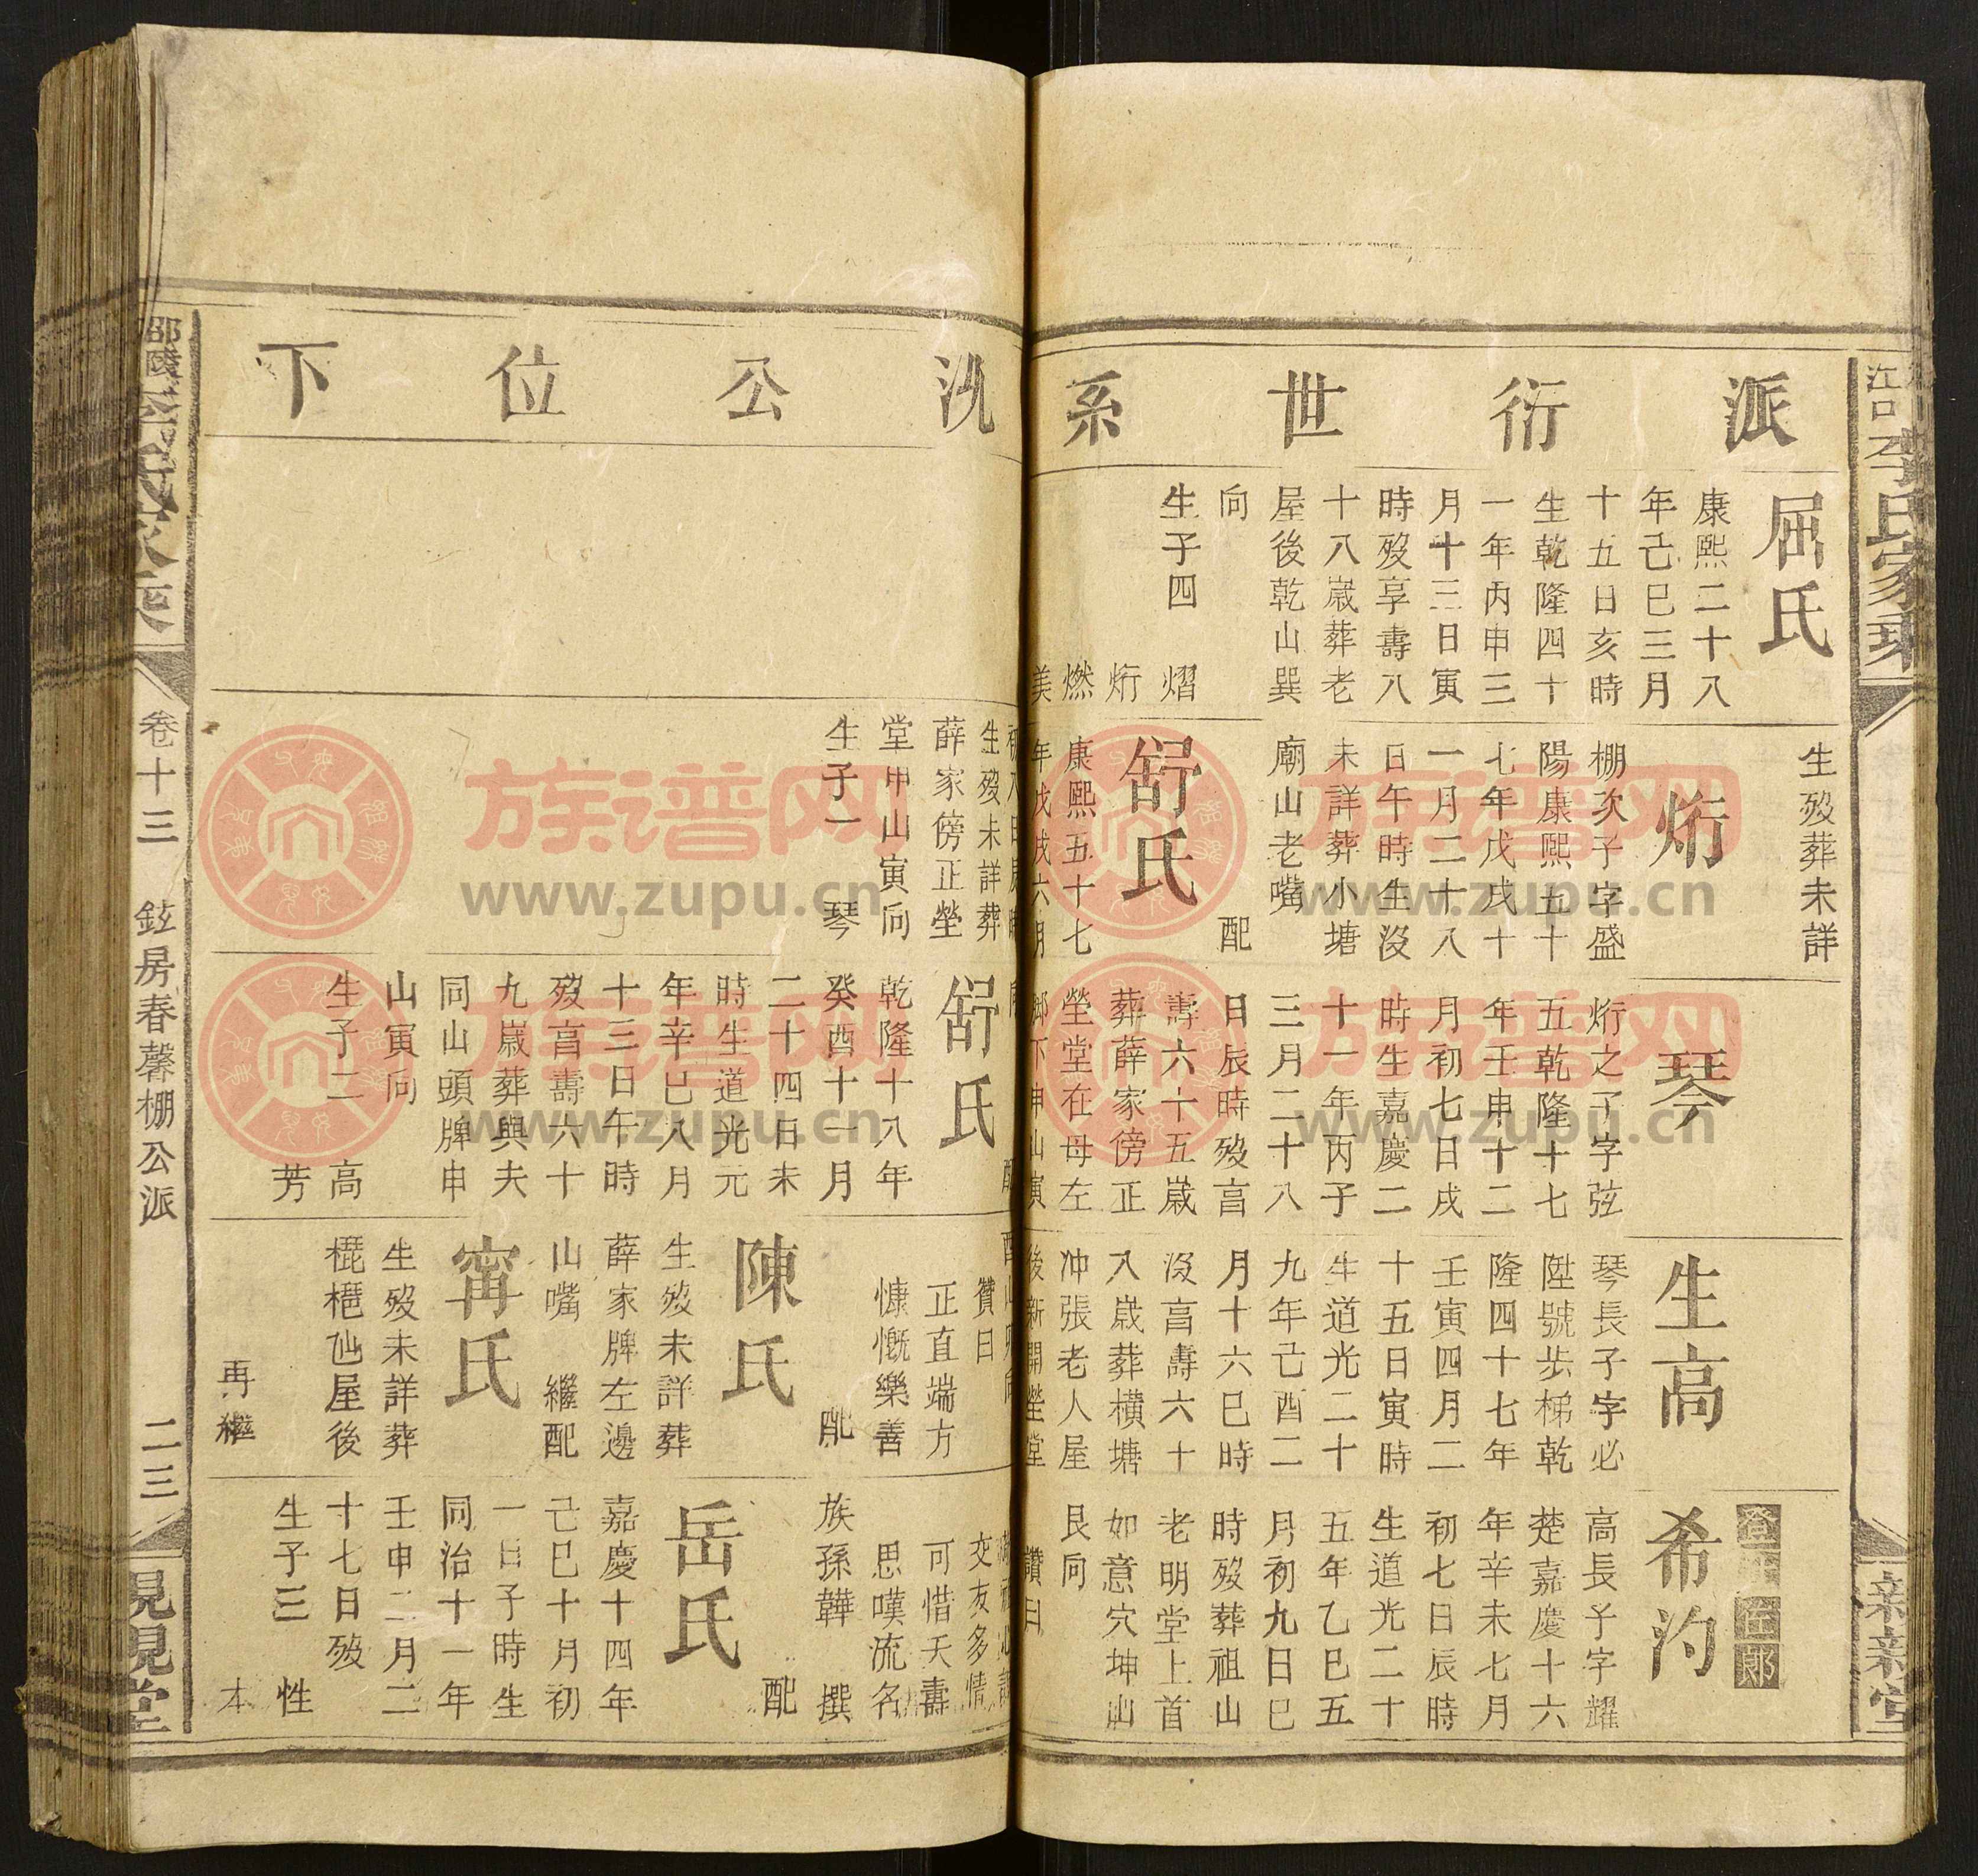 派衍世系
屈氏
康熙二十八
年己巳三月
十五日亥時
生乾隆四十
一年丙申三
月十三日寅
時歿享壽八
十八歲葬老
屋後乾山巽
向
生子四 熠
烆
燃
美
生歿葬未詳
烆
棚次子字盛
陽康熙五十
七年戊戌十
一月二十八
日午時生沒
未詳葬小塘
廟山老嘴
配
舒氏
康熙五十七
年戊戌六月
琴
烆之子字弦
五乾隆十七
年壬申十二
月初七日戌
時生嘉慶二
十一年丙子
三月二十八
日辰時歿亯
壽六十五歲
葬薛家傍正
塋堂在母左
鄉下申山寅
生高
琴長子字必
陞號步梯乾
隆四十七年
壬寅四月二
十五日寅時
生道光二十
九年己酉二
月十六巳時
沒亯壽六十
八歲葬橫塘
冲張老人屋
後新開塋堂
希汋
高長子字耀
楚嘉慶十六
年辛未七月
初七日辰時
生道光二十
五年乙巳五
月初九日巳
時歿葬祖山
老明堂上首
如意穴坤山
艮向
讚曰
江口李氏家乘
新新堂
洗公位下
生歿未詳葬
薛家傍正塋
堂申山寅向
生子一 琴
向 配
舒氏
乾隆十八年
癸酉十一月
二十四日未
時生道光元
年辛巳八月
十三日午時
歿亯壽六十
九歲葬與夫
同山頭牌申
山寅向
生子二 高
芳
贊曰
正直端方
慷慨樂善
配
陳氏
生歿未詳葬
薛家牌左邊
山嘴 繼配
甯氏
生歿未詳葬
棍杷屋後
再繼
交友多情
可惜夭壽
思嘆流名
族孫鞾撰
配
岳氏
嘉慶十四年
己巳十月初
一日子時生
同治十一年
壬申二月二
十七日歿
生子三 性
本
邵陵李氏家乘
卷十三
鉉房春馨棚公派
二三
睍睍堂
族谱网
www.zupu.cn
族谱网
www.zupu.cn
族谱网
www.zupu.cn
族谱网
www.zupu.cn